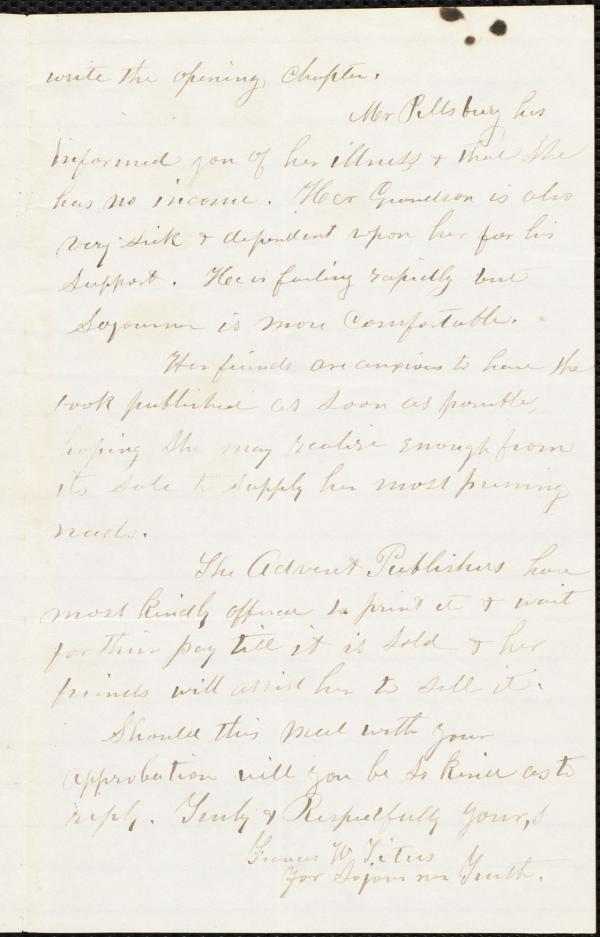 write the opening chapter.
Mr Pillsbury has
informed you of her illness & that she
has no income. Her Grandson is also
very sick & dependent upon her for his
support. He is failing rapidly but
Sojourner is more comfortable.
Her friends are anxious to have the
book published as soon as possible,
hoping she may realize enough from
its sale to supply her most pressing
needs.
The Advent Publishers have
most kindly offered to print it & wait
for their pay till it is sold & her
friends will assist her to sell it.
Should this meet with your
approbation will you be so kind as to
reply. Truly & Respectfully Yours,
Frances W. Titus
For Sojourner Truth.